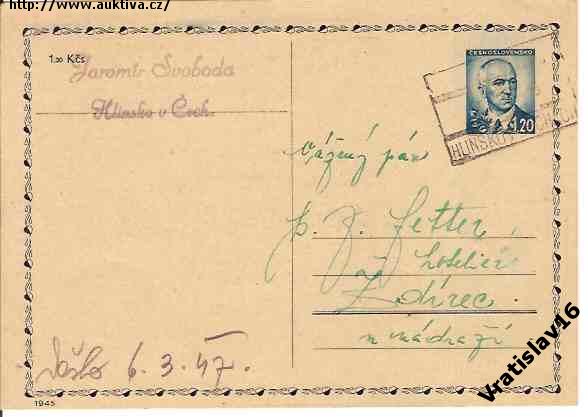 http://www.auktiva.cz/
1.20 Kčs
Jaromír Svoboda
Hlinsko v Čech.
ČESKOSLOVENSKO
Kčs
1.20
HLINSKO V ČECH
Vážený pán
p. J. Fetter,
hotelier
Ždírec
u nádraží
Došlo 6. 3. 47.
1945
Vratislav16